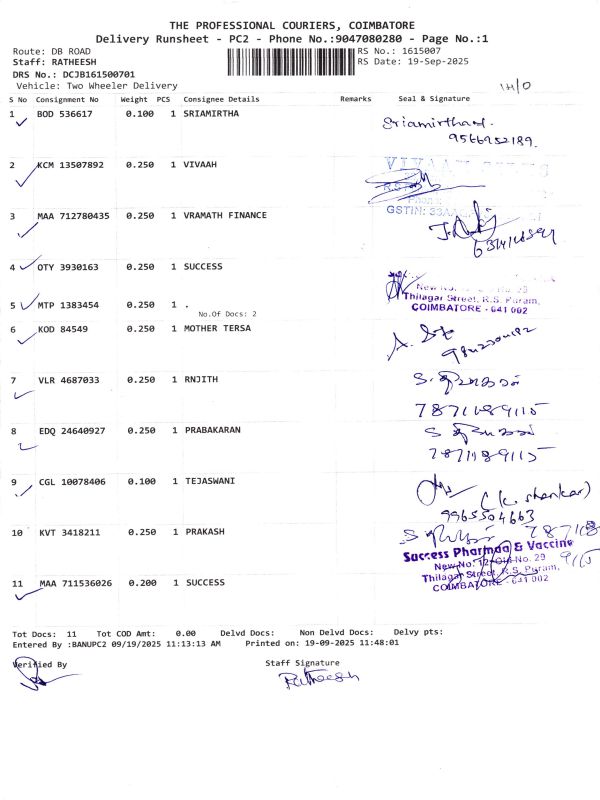 THE PROFESSIONAL COURIERS, COIMBATORE
Delivery Runsheet - PC2 - Phone No.:9047080280 - Page No.:1
Route: DB ROAD RS No.: 1615007
Staff: RATHEESH RS Date: 19-Sep-2025
DRS No.: DCJB161500701
Vehicle: Two Wheeler Delivery
S No Consignment No Weight PCS Consignee Details Remarks Seal & Signature
1 BOD 536617 0.100 1 SRIAMIRTHA
Sriamirtha
9566952189.
2 KCM 13507892 0.250 1 VIVAAH
GSTIN: 33AA
3 MAA 712780435 0.250 1 VRAMATH FINANCE
4 OTY 3930163 0.250 1 SUCCESS
New No. 29
Thilagar Street, R.S. Puram,
COIMBATORE - 641 002
5 MTP 1383454 0.250 1 .
No.Of Docs: 2
6 KOD 84549 0.250 1 MOTHER TERSA
7 VLR 4687033 0.250 1 RNJITH
7871689115
8 EDQ 24640927 0.250 1 PRABAKARAN
7871189115
9 CGL 10078406 0.100 1 TEJASWANI
(K. Shankar)
9965504663
10 KVT 3418211 0.250 1 PRAKASH
Success Pharmaa & Vaccine
New No. 12, Old No. 29
Thilagar Street, R.S. Puram,
COIMBATORE - 641 002
11 MAA 711536026 0.200 1 SUCCESS
Tot Docs: 11 Tot COD Amt: 0.00 Delvd Docs: Non Delvd Docs: Delvy pts:
Entered By :BANUPC2 09/19/2025 11:13:13 AM Printed on: 19-09-2025 11:48:01
Verified By Staff Signature
Ratheesh